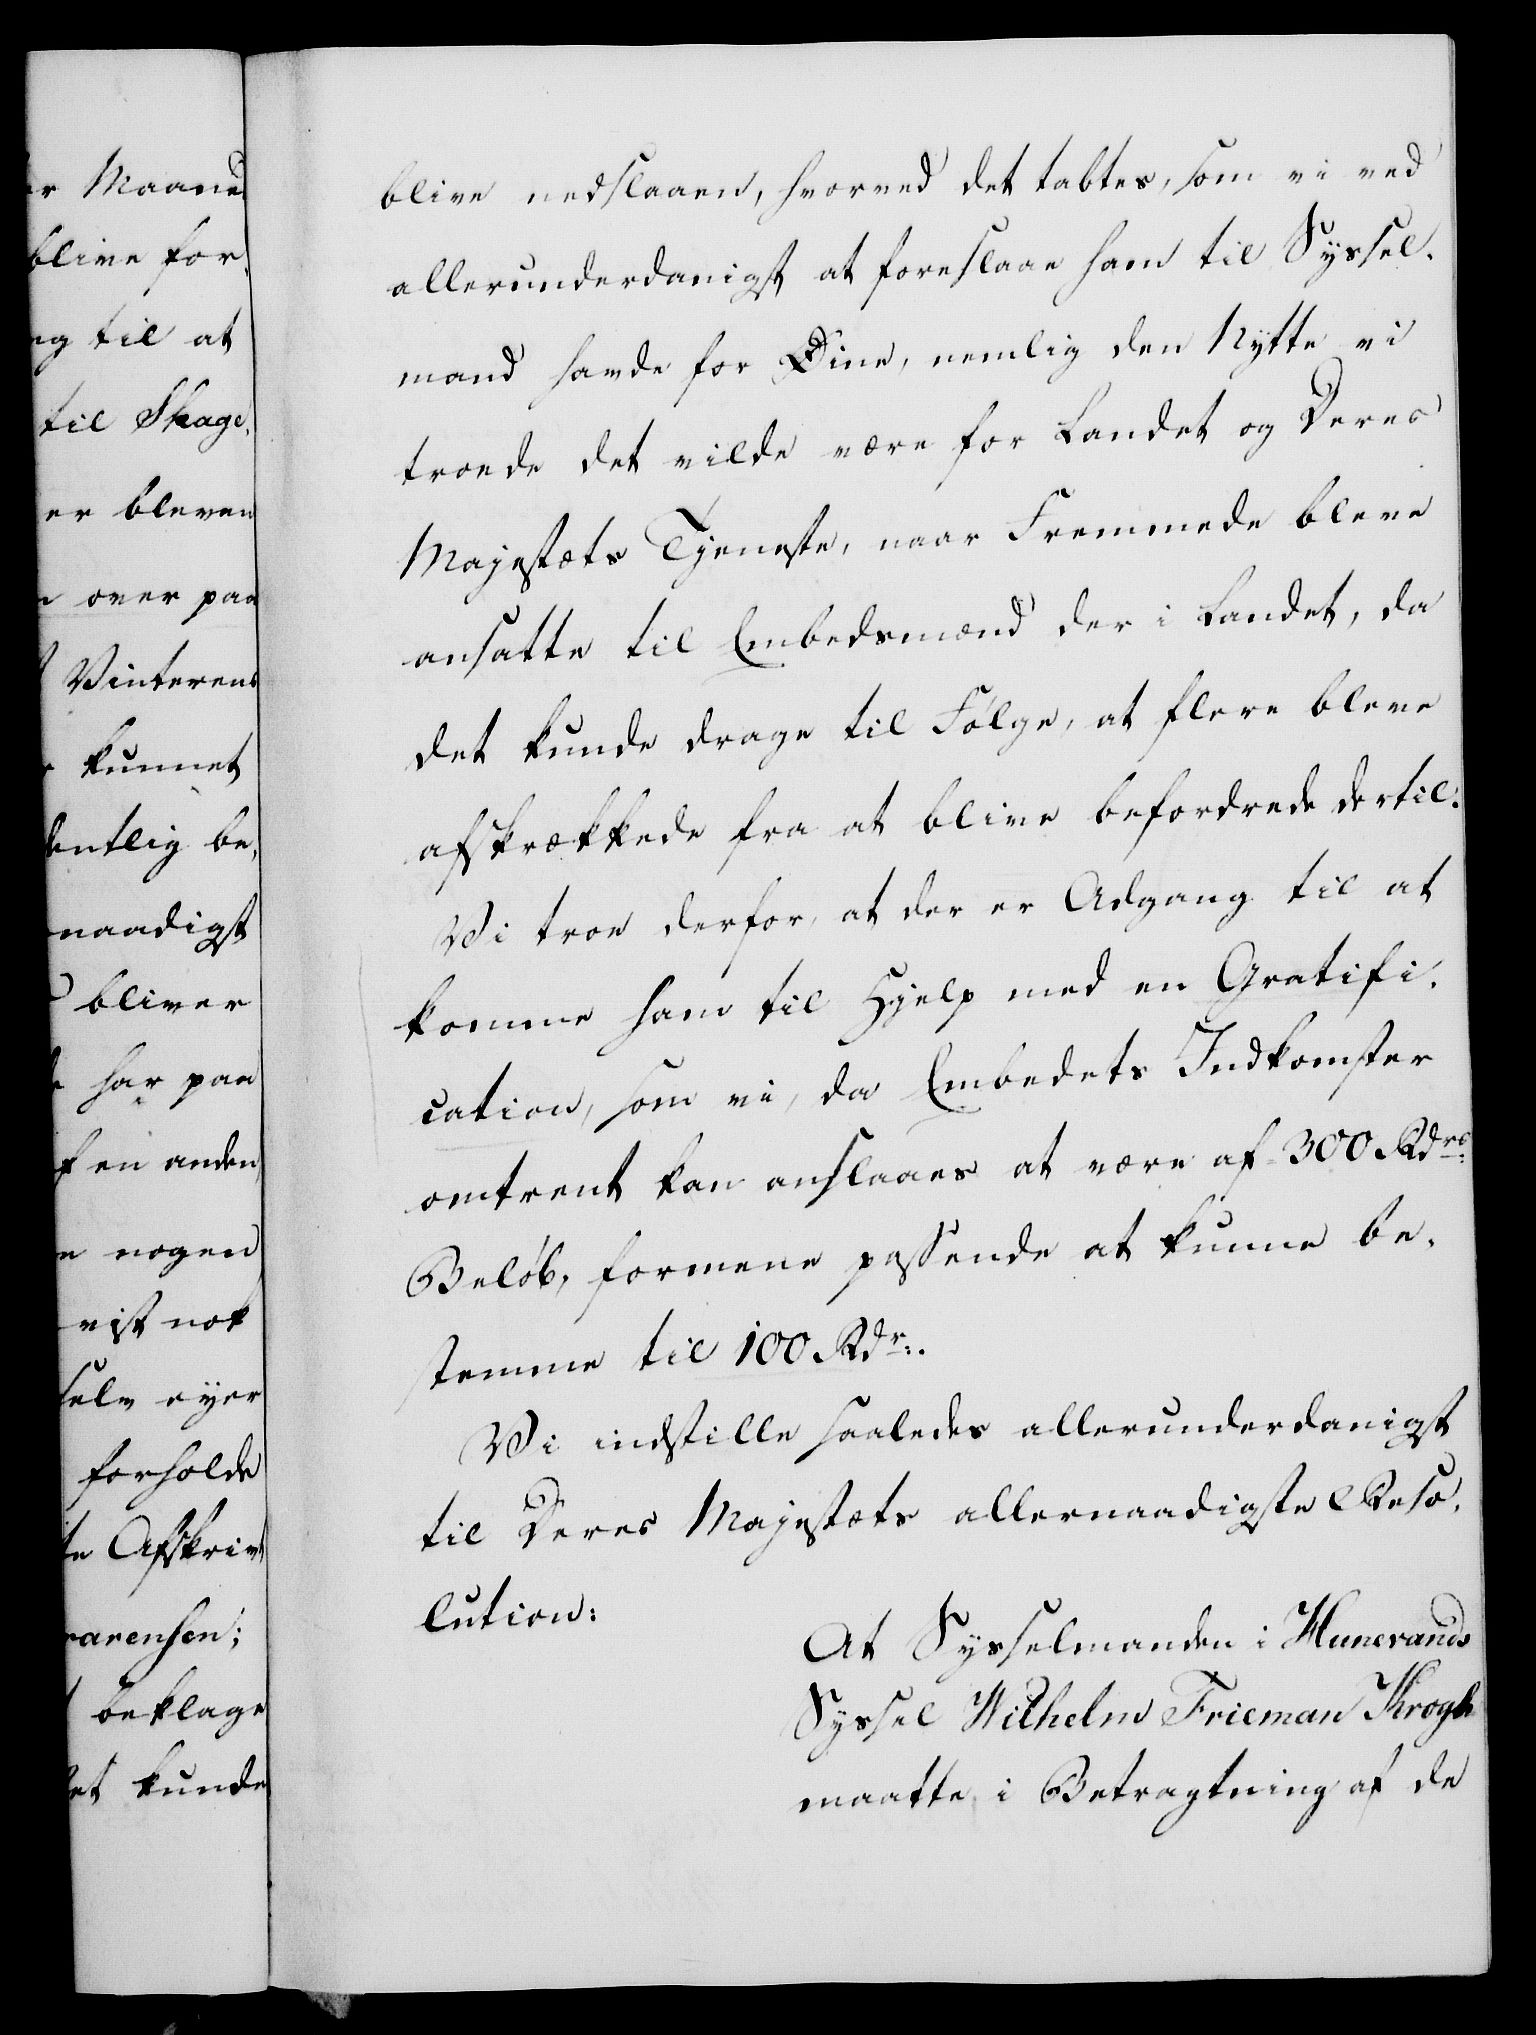 er Maaned
blive for,
ng til at
til Skage,
er bleven
over paa
Vinterens
kunnet
dentlig be,
naadigst
bliver
har paa
en anden
nogen
vist nok
selv eyer
forholde
te Afskrivt
rarensen;
beklage
det kunde
blive nedslaaen, hvorved det tabtes, som vi ved
allerunderdanigst at foreslaae ham til Syssel,
mand havde for Øine, nemlig den Nytte vi
troede det vilde være for Landet og Deres
Majestæts Tjeneste, naar Fremmede bleve
ansatte til Embedsmænd der i Landet, da
det kunde drage til Følge, at flere bleve
afskrækkede fra at blive befordrede dertil.
Vi troe derfor, at der er Adgang til at
komme ham til Hjelp med en Gratifi,
cation, som vi, da Embedets Indkomster
omtrent kan anslaaes at være af 300 Rdrs
Beløb, formene passende at kunne be,
stemme til 100 Rdr.
Vi indstille saaledes allerunderdanigst
til Deres Majestæts allernaadigste Reso,
lution:
At Sysselmanden i Hunevands
Syssel Wilhelm Frieman Krogh
maatte i Betragtning af de